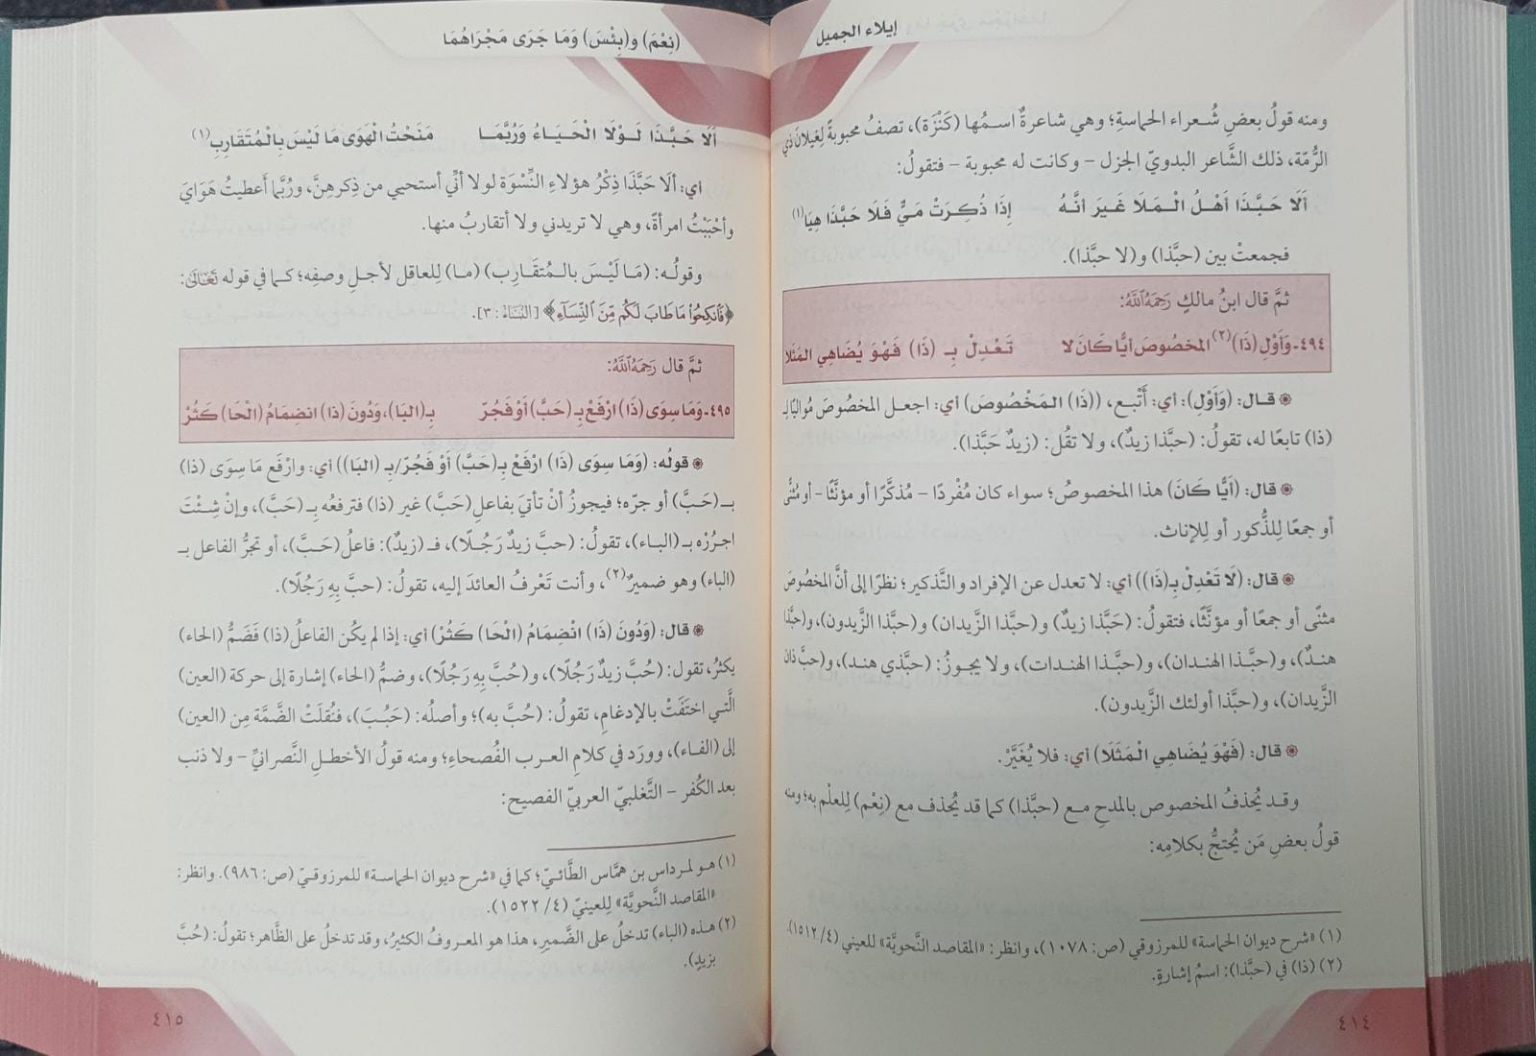 إيلاء الجميل
ومنه قولُ بعضِ شُعراء الحماسةِ؛ وهي شاعرةٌ اسمُها (كَنْزَة)، تصفُ محبوبةً لِغيلانَ ذي
الرُّمّة، ذلك الشَّاعر البدويّ الجزل – وكانت له محبوبة – فتقولُ:
أَلَا حَبَّذَا أَهْلُ الْمَلَا غَيرَ أنَّهُ إِذَا ذُكِرَتْ مَيٌّ فَلَا حَبَّذَا هِيَا(١)
فجمعتْ بين (حبَّذا) و(لا حبَّذا).
ثمَّ قال ابنُ مالكٍ رَحِمَهُ اللَّهُ:
٤٩٤- وَأَوْلِ (ذَا)(٢) المخصُوصَ أيًّا كَانَ لا تَعْدِلْ بِـ (ذَا) فَهْوَ يُضَاهِي المَثَلا
قال: (وَأَوْلِ): أي: أَتْبِع، ((ذَا) المَخْصُوصَ) أي: اجعل المخصُوصَ مُواليًا لِـ
(ذا) تابعًا له، تقولُ: (حبَّذا زيدٌ)، ولا تقُل: (زيدٌ حَبَّذا).
قال: (أيًّا كَانَ) هذا المخصوصُ؛ سواء كان مُفْردًا – مُذكَّرًا أو مؤنَّثًا – أو مُثنًّى
أو جمعًا لِلذُّكور أو لِلإناث.
قال: (لَا تَعْدِلْ بِـ(ذَا)) أي: لا تعدل عن الإفراد والتَّذكير؛ نظرًا إلى أنَّ المخصُوصَ
مثنًّى أو جمعًا أو مؤنَّثًا، فتقولُ: (حَبَّذا زيدٌ) و(حبَّذا الزَّيدان) و(حبَّذا الزَّيدون)، و(حبَّذا
هندٌ)، و(حبَّذا الهندان)، و(حبَّذا الهندات)، ولا يجوزُ: (حبَّذي هند)، و(حبَّ ذان
الزَّيدان)، و(حبَّذا أولئك الزَّيدون).
قال: (فَهْوَ يُضَاهِي الْمَثَلَا) أي: فلا يُغَيَّرْ.
وقد يُحذفُ المخصوص بالمدحِ مع (حبَّذا) كما قد يُحذف مع (نِعْم) لِلعلْم به؛ ومنه
قولُ بعضِ مَن يُحتجُّ بكلامِه:
(١) «شرح ديوان الحماسة» للمرزوقي (ص: ١٠٧٨)، وانظر: «المقاصد النَّحويَّة» للعيني (٤/ ١٥١٢).
(٢) (ذا) في (حبَّذا): اسمُ إشارةٍ.
٤١٤
(نِعْمَ) و(بِئْسَ) وَمَا جَرَى مَجْرَاهُمَا
أَلَا حَبَّذَا لَوْلَا الْحَيَاءُ وَرُبَّمَا مَنَحْتُ الْهَوَى مَا لَيْسَ بِالْمُتَقَارِبِ(١)
أي: ألَا حَبَّذَا ذِكْرُ هؤلاءِ النِّسْوَة لولا أنِّي أستحيي من ذِكرهِنَّ، ورُبَّما أَعطيتُ هَوَايَ
وأحْبَبْتُ امرأةً، وهي لا تريدني ولا أتقاربُ منها.
وقولُه: (مَا لَيْسَ بالمُتقَارِب) (ما) لِلعاقل لأجلِ وصفِه؛ كما في قوله تَعَالَى:
﴿فَٱنكِحُوا۟ مَا طَابَ لَكُم مِّنَ ٱلنِّسَآءِ﴾ [النِّسَاء: ٣].
ثمَّ قال رَحِمَهُ اللَّهُ:
٤٩٥- وَمَا سِوَى (ذَا) ارْفَعْ بِـ (حَبَّ) أَوْ فَجُرّ بِـ(البَا)، وَدُونَ (ذا) انضِمَامُ (الْحَا) كَثُرْ
قولُه: (وَمَا سِوَى (ذَا) ارْفَعْ بِـ(حَبَّ) أَوْ فَجُرّ/بِـ (البَا)) أي: وارْفَع مَا سِوَى (ذا)
بـ(حَبَّ) أو جرّه؛ فيجوزُ أنْ تأتيَ بفاعلِ (حَبَّ) غير (ذا) فترفعُه بِـ (حَبَّ)، وإنْ شِئْتَ
اجرُرْه بـ (الباء)، تقولُ: (حبَّ زيدٌ رَجُلًا)، فـ (زيدٌ): فاعلُ (حَبَّ)، أو تجرُّ الفاعل بـ
(الباء) وهو ضميرٌ(٢)، وأنت تَعْرفُ العائدَ إليه، تقولُ: (حبَّ بِهِ رَجُلًا).
قال: (وَدُونَ (ذَا) انْضِمَامُ (الْحَا) كَثُرْ) أي: إذا لم يكُن الفاعلُ (ذا) فَضَمُّ (الحاء)
يكثرُ، تقول: (حُبَّ زيدٌ رَجُلًا)، و(حُبَّ بِهِ رَجُلًا)، وضمُّ (الحاء) إشارة إلى حركة (العين)
الَّتي اختَفَتْ بالإدغامِ، تقولُ: (حُبَّ به)؛ وأصلُه: (حَبُبَ)، فنُقلَتْ الضَّمَّة مِن (العين)
إلى (الفاء)، وورَد في كلامِ العرب الفُصحاءِ؛ ومنه قولُ الأخطلِ النَّصرانيِّ – ولا ذنب
بعد الكُفر – التَّغلبيّ العربيّ الفصيح:
(١) هو لمرداس بن همَّاس الطَّائيّ؛ كما في «شرح ديوان الحماسة» للمرزوقيّ (ص: ٩٨٦). وانظر:
«المقاصد النَّحويَّة» لِلعينيّ (٤/ ١٥٢٢).
(٢) هذه (الباء) تدخلُ على الضَّميرِ، هذا هو المعروفُ الكثيرُ، وقد تدخلُ على الظَّاهر؛ تقولُ: (حُبَّ
بزيدٍ).
٤١٥